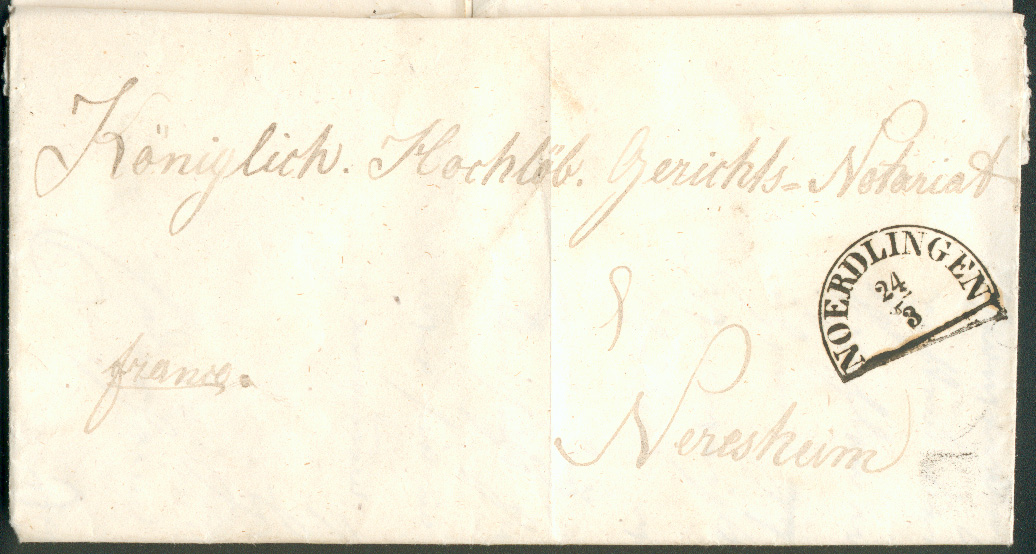 Königlich. Hochlöb. Gerichts-Notariat
NOERDLINGEN
24/3
franco.
Neresheim